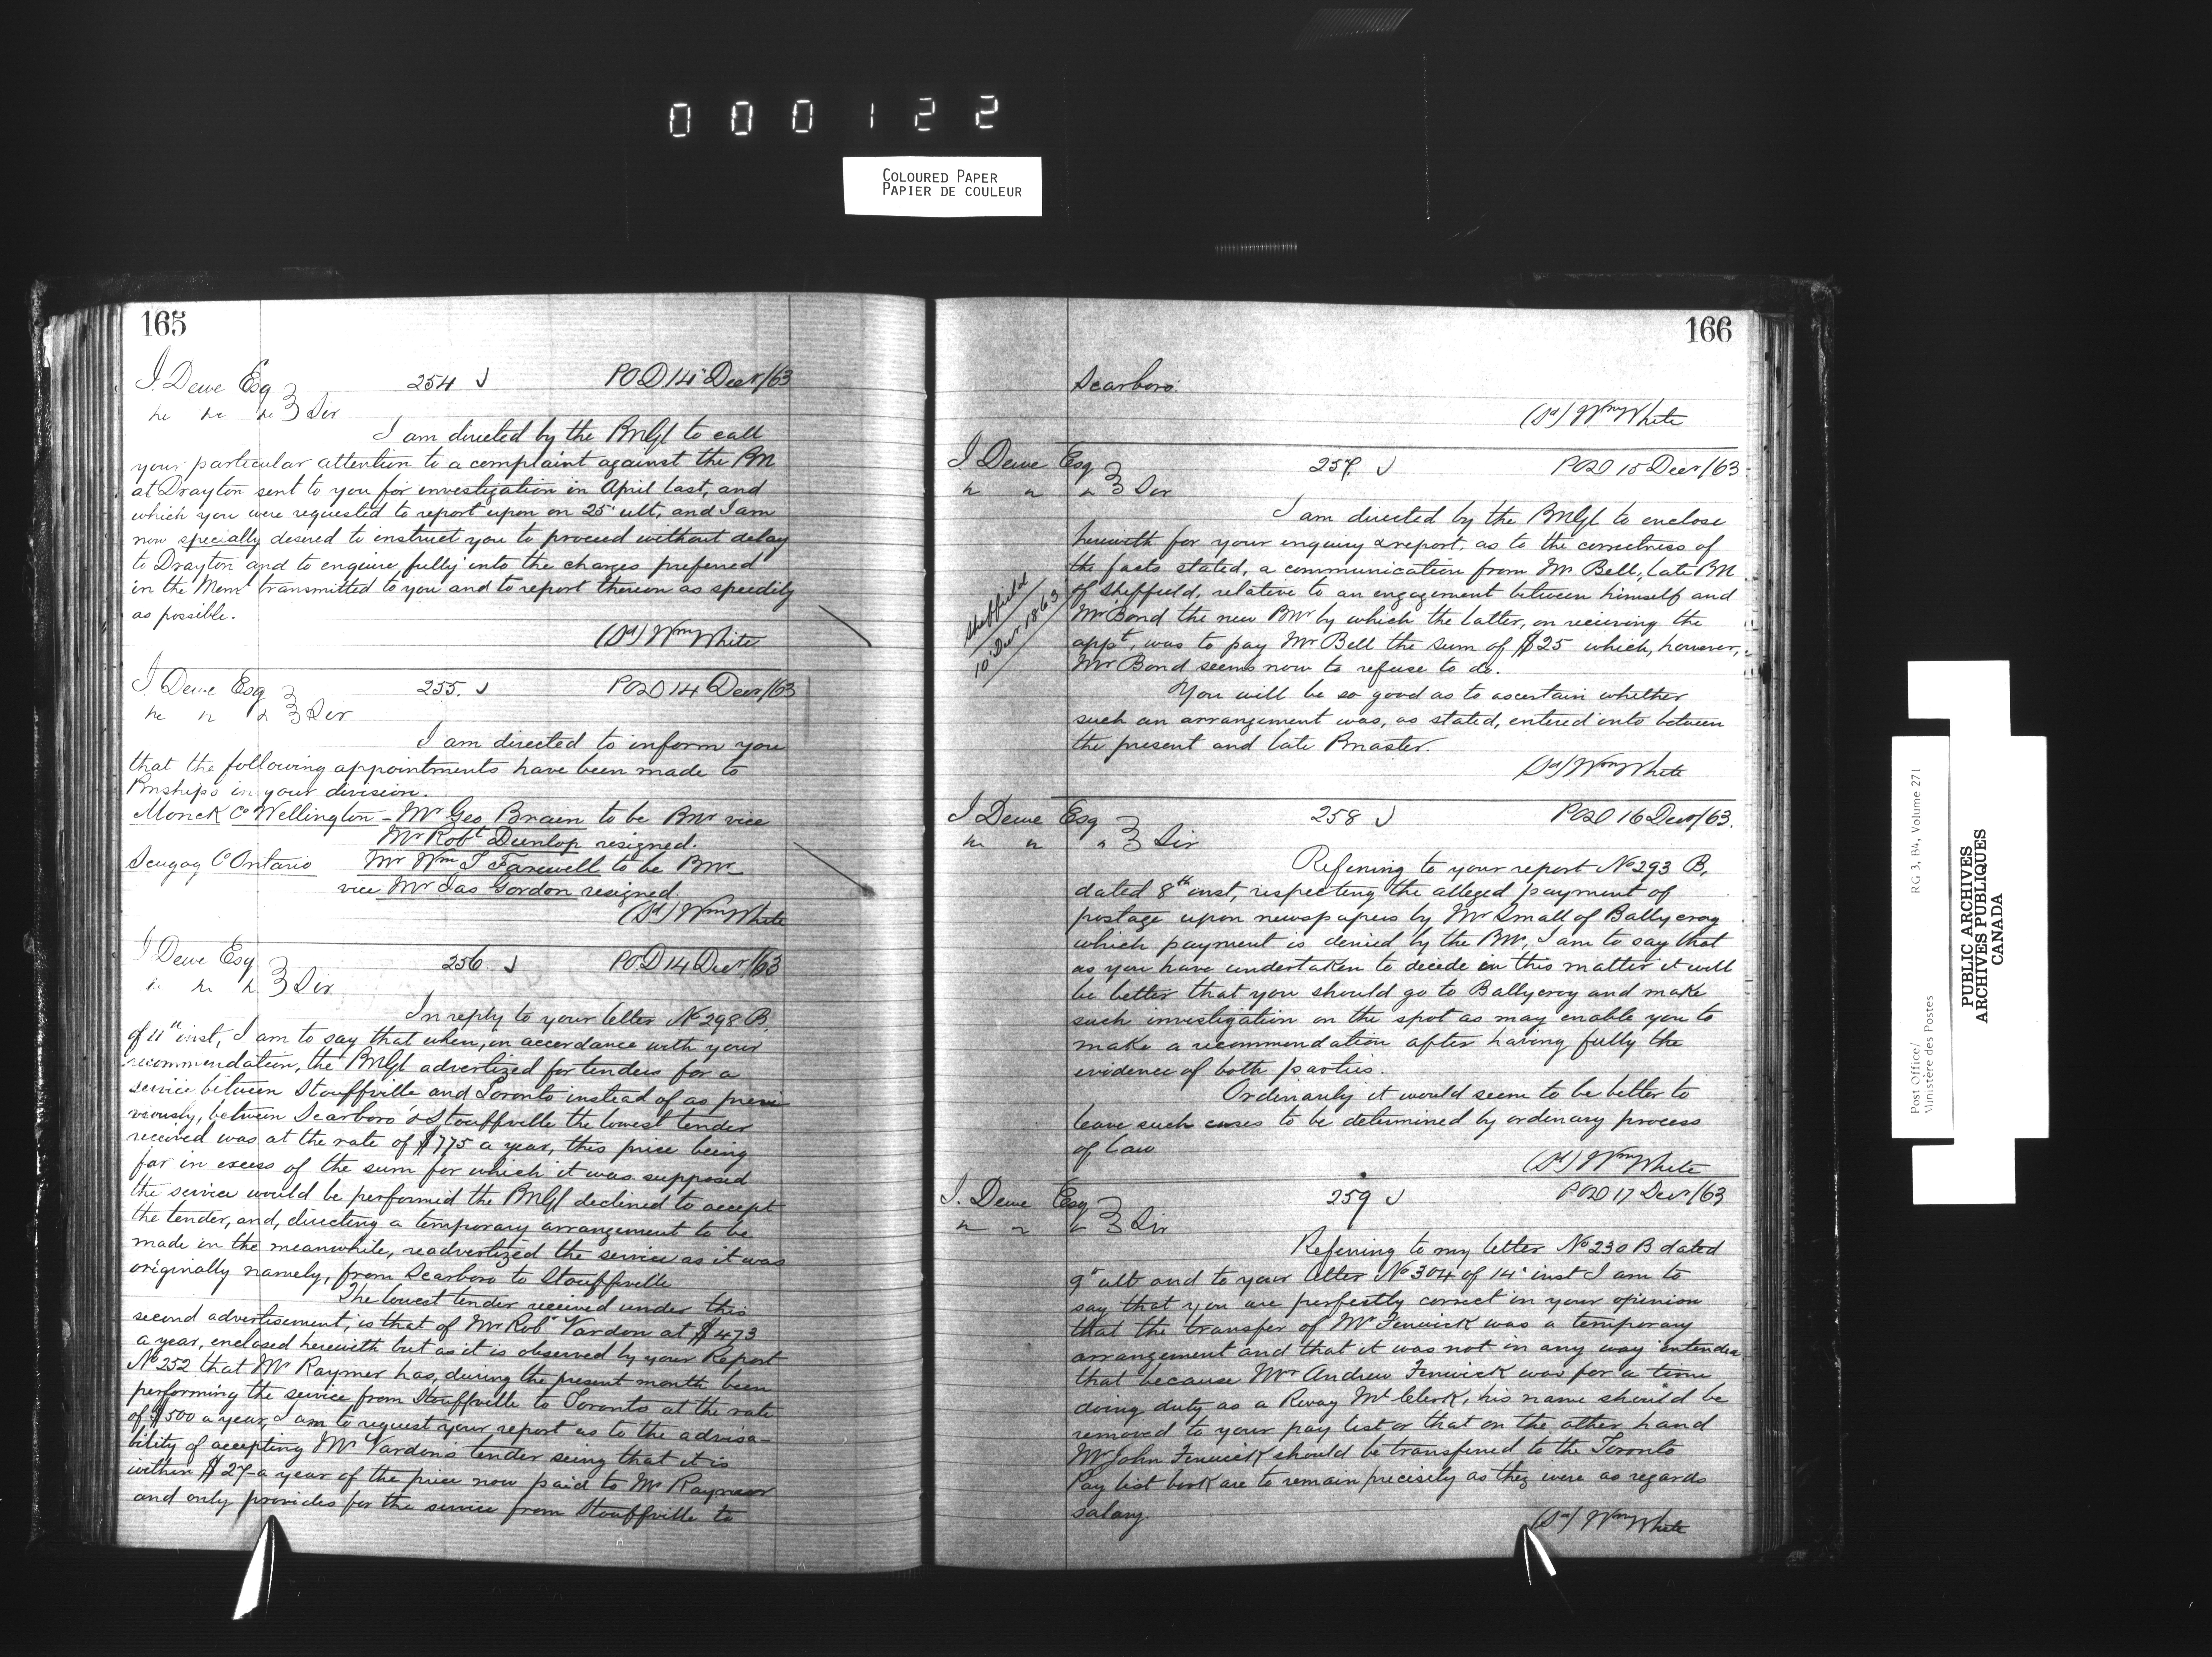 000122
COLOURED PAPER
PAPIER DE COULEUR
165
J. Dewe Esq 254 J POD 14 Decr/63
Sir
I am directed by the PMGl to call
your particular attention to a complaint against the PM
at Drayton sent to you for investigation in April last, and
which you were requested to report upon on 25' ult, and I am
now specially desired to instruct you to proceed without delay
to Drayton and to enquire fully into the charges preferred
in the Meml transmitted to you and to report thereon as speedily
as possible.
(Sd) Wm White
J Dewe Esq 255. J POD 14 Decr/63
Sir
I am directed to inform you
that the following appointments have been made to
Pmships in your division.
Monck Co Wellington - Mr Geo Brain to be PMr vice
Mr Robt Dunlop resigned.
Scugog Co Ontario Mr Wm T Farewell to be PMr
vice Mr Jas Gordon resigned
(Sd) Wm White
J Dewe Esq 256 J POD 14 Decr/63
Sir
In reply to your letter No 298 B.
of 11th inst, I am to say that when, in accordance with your
recommendation, the PMGl advertized for tenders for a
service between Stouffville and Toronto instead of as pre
viously, between Scarboro' & Stouffville the lowest tender
received was at the rate of $775 a year, this price being
far in excess of the sum for which it was supposed
the service would be performed the PMGl declined to accept
the tender, and, directing a temporary arrangement to be
made in the meanwhile, readvertized the service as it was
originally namely, from Scarboro to Stouffville
The lowest tender received under this
second advertisement, is that of Mr Robt Vardon at $473
a year, enclosed herewith but as it is observed by your Report
No 252 that Mr Raymer has, during the present month been
performing the service from Stouffville to Toronto at the rate
of $500 a year, I am to request your report as to the advisa-
bility of accepting Mr Vardon's tender seeing that it is
within $27 a year of the price now paid to Mr Raymer
and only provides for the service from Stouffville to
166
Scarboro.
(Sd) Wm White
J Dewe Esq 257 J POD 15 Decr/63
Sir
I am directed by the PMGl to enclose
herewith for your enquiry & report, as to the correctness of
the facts stated, a communication from Mr Bell, late PM
Sheffield
10' Decr 1863
of Sheffield, relative to an engagement between himself and
Mr Bond the new PMr by which the latter, on receiving the
appt, was to pay Mr Bell the sum of $25 which, however,
Mr Bond seems now to refuse to do.
You will be so good as to ascertain whether
such an arrangement was, as stated, entered into between
the present and late Pmaster.
(Sd) Wm White
J Dewe Esq 258 J POD 16 Decr/63.
Sir
Refering to your report No 293 B,
dated 8th inst, respecting the alleged payment of
postage upon newspapers by Mr Small of Ballycroy
which payment is denied by the PMr, I am to say that
as you have undertaken to decide in this matter it will
be better that you should go to Ballycroy and make
such investigation on the spot as may enable you to
make a recommendation after having fully the
evidence of both parties.
Ordinarily it would seem to be better to
leave such cases to be determined by ordinary process
of law
(Sd) Wm White
J. Dewe Esq 259 J POD 17 Decr/63
Sir
Refering to my letter No 230 B dated
9th ult and to your letter No 304 of 14' inst I am to
say that you are perfectly correct in your opinion
that the transfer of Mr Fenwick was a temporary
arrangement and that it was not in any way intended
that because Mr Andrew Fenwick was for a time
doing duty as a Rway Ml Clerk, his name should be
removed to your pay list or that on the other hand
Mr John Fenwick should be transferred to the Toronto
Pay list both are to remain precisely as they were as regards
salary.
(Sd) Wm White
Post Office/ RG 3, B4, Volume 271
Ministère des Postes
PUBLIC ARCHIVES
ARCHIVES PUBLIQUES
CANADA